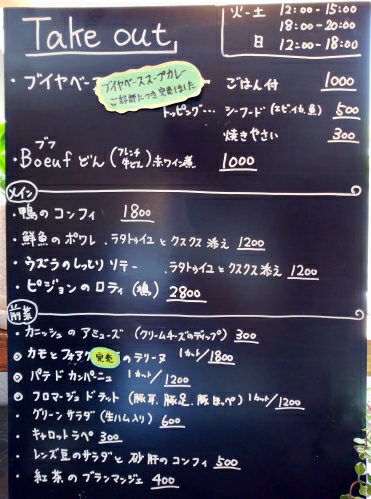 Take out
火-土 12:00-15:00
18:00-20:00
日 12:00-18:00
・ブイヤベース ごはん付 1000
ブイヤベーススープカレー
ご好評につき完売しました
トッピング… シーフード(エビ,イカ,魚) 500
焼きやさい 300
ブフ
・Boeufどん(フレンチ牛どん).赤ワイン煮 1000
メイン
・鴨のコンフィ 1800
・鮮魚のポワレ.ラタトゥイユとクスクス添え 1200
・ウズラのしっとりソテー.ラタトゥイユとクスクス添え 1200
・ピジョンのロティ(鳩) 2800
前菜
・カニッシュのアミューズ(クリームチーズのディップ) 300
◎カモとフォアグ 完売 のテリーヌ 1カット/1800
◎パテドカンパーニュ 1カット/1200
◎フロマージュドテット(豚耳、豚足、豚ほっぺ) 1カット/1200
・グリーンサラダ(生ハム入り) 600
・キャロットラペ 300
・レンズ豆のサラダと砂肝のコンフィ 500
・紅茶のブランマンジェ 400